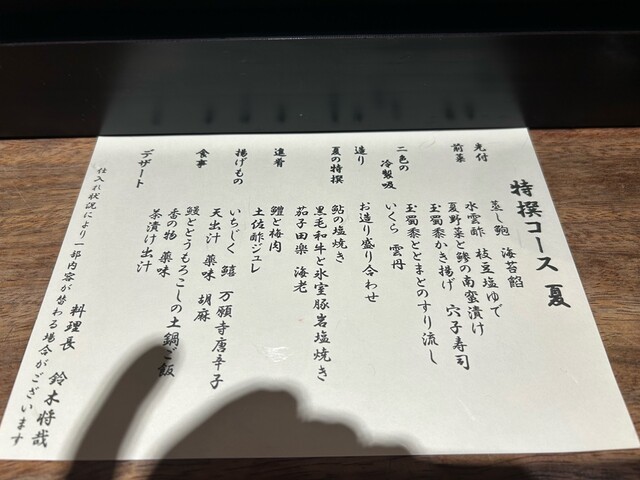 特撰コース 夏
先付 蒸し鮑 海苔餡
前菜 水雲酢 枝豆塩ゆで
夏野菜と鯵の南蛮漬け
玉蜀黍かき揚げ 穴子寿司
二色の冷製吸 玉蜀黍ととまとのすり流し
いくら 雲丹
造り お造り盛り合わせ
夏の特撰 鮎の塩焼き
黒毛和牛と氷室豚岩塩焼き
茄子田楽 海老
進肴 鱧と梅肉
土佐酢ジュレ
揚げもの いちじく 鱚 万願寺唐辛子
天出汁 薬味 胡麻
食事 鰻ととうもろこしの土鍋ご飯
香の物 薬味
茶漬け出汁
デザート
料理長 鈴木将哉
仕入れ状況により一部内容が替わる場合がございます